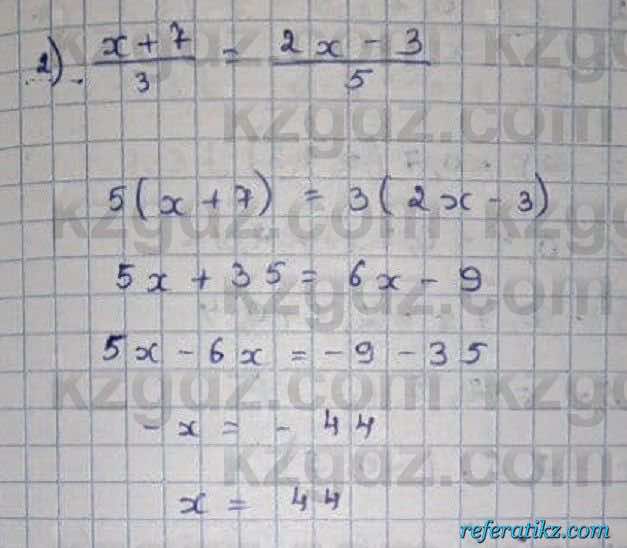 2) x + 7 / 3 = 2x - 3 / 5
5(x + 7) = 3(2x - 3)
5x + 35 = 6x - 9
5x - 6x = -9 - 35
-x = - 44
x = 44
kzgdz.com
referatikz.com